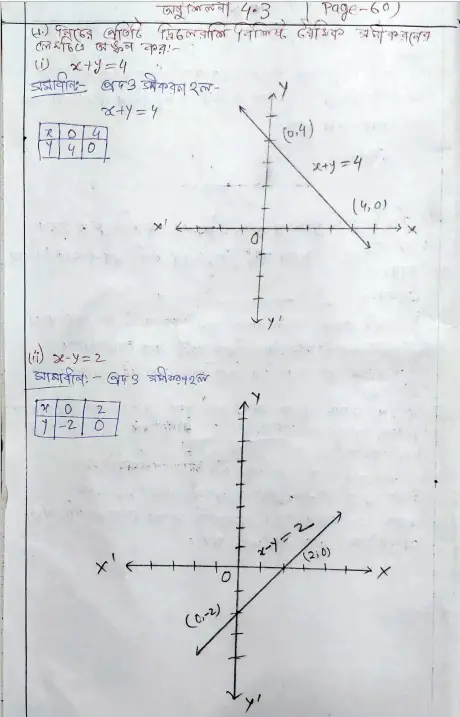 অনুশীলনী 4.3 (Page-60)
(1) নিচের প্রতিটি দ্বিচলরাশি বিশিষ্ট রৈখিক সমীকরণের
লেখচিত্র অঙ্কন কর:-
(i) x+y=4
সমাধান:- প্রদত্ত সমীকরণ হল-
x+y=4
x 0 4
y 4 0
Y
(0,4)
x+y=4
(4,0)
X' O X
Y'
(ii) x-y=2
সমাধান:- প্রদত্ত সমীকরণ হল
x 0 2
y -2 0
Y
x-y=2
(2,0)
X' O X
(0,-2)
Y'